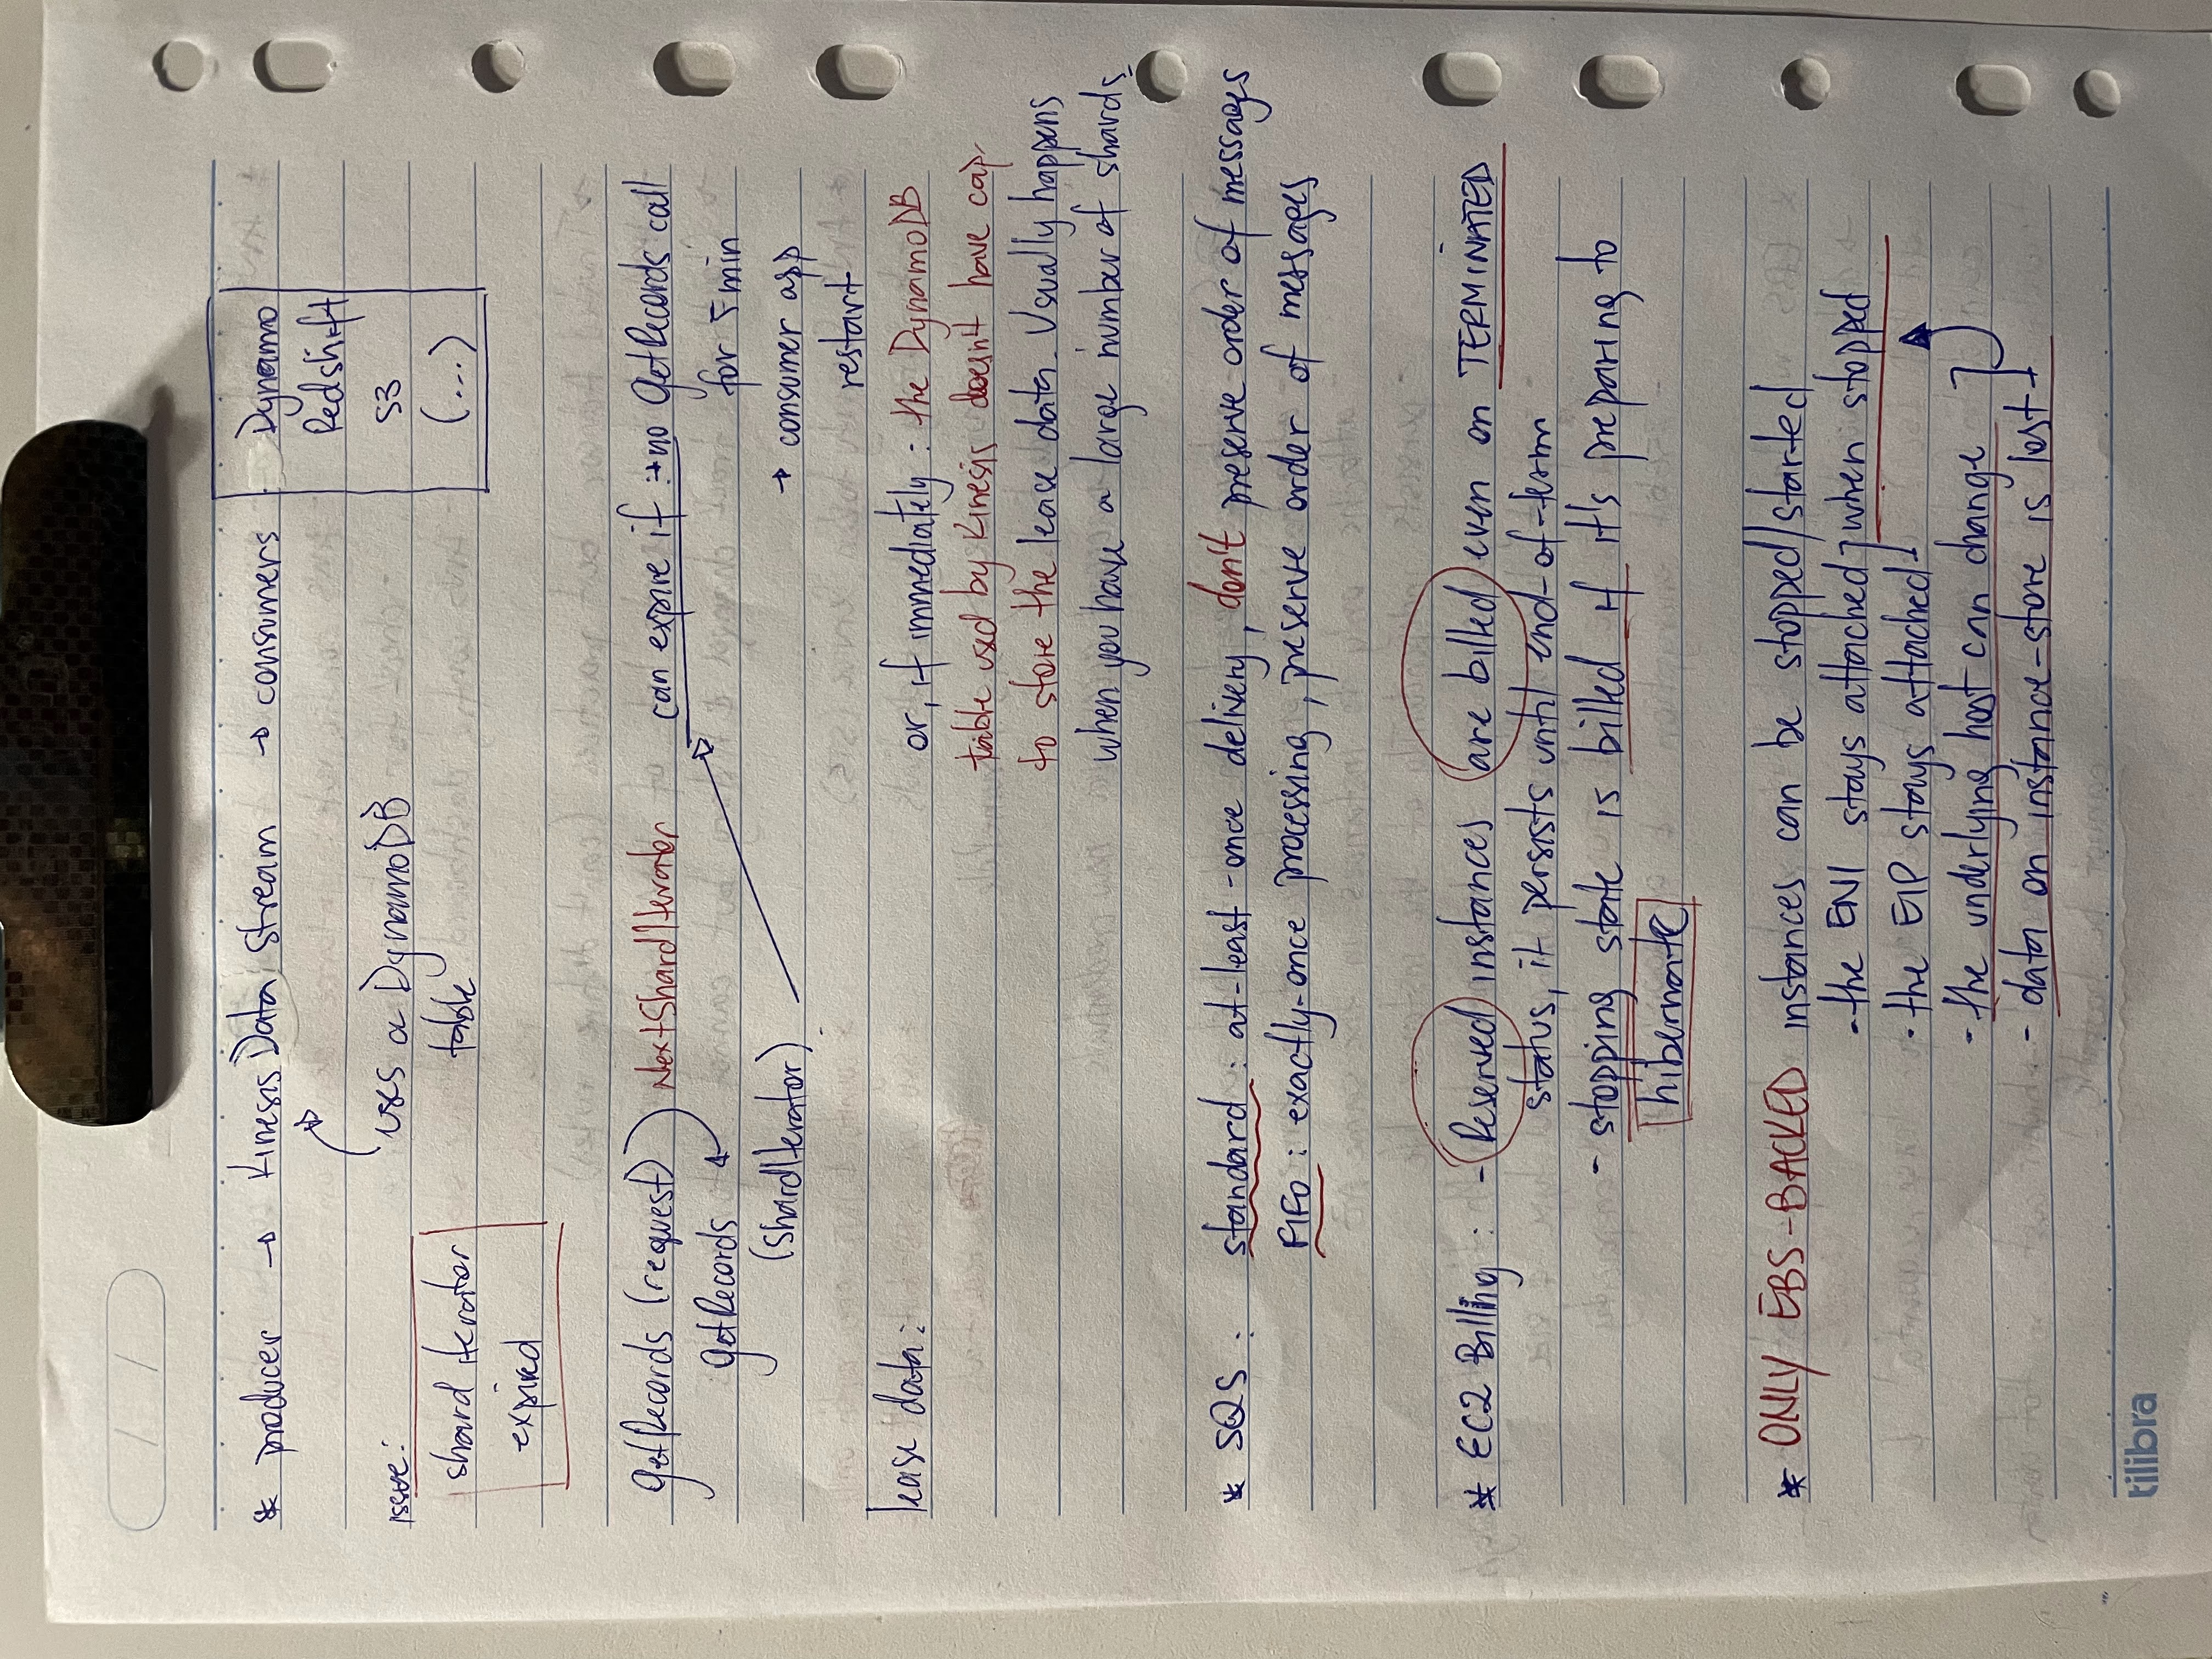 / /
* producer → Kinesis Data Stream → consumers
Dynamo
Redshift
S3
(...)
uses a DynamoDB
table
issue:
shard iterator
expired
getRecords (request) NextShardIterator
getRecords
(shardIterator)
can expire if :→ no GetRecords call
for 5 min
→ consumer app
restart
lease data:
or, if immediately: the DynamoDB
table used by Kinesis doesn't have cap.
to store the lease data. Usually happens
when you have a large number of shards
* SQS: standard: at-least-once delivery, don't preserve order of messages
FIFO: exactly-once processing, preserve order of messages
* EC2 Billing: - Reserved instances are billed even on TERMINATED
status, it persists until end-of-term
- stopping state is billed if it's preparing to
hibernate
* ONLY EBS-BACKED instances can be stopped/started
- the ENI stays attached when stopped
- the EIP stays attached
- the underlying host can change
- data on instance-store is lost
tilibra